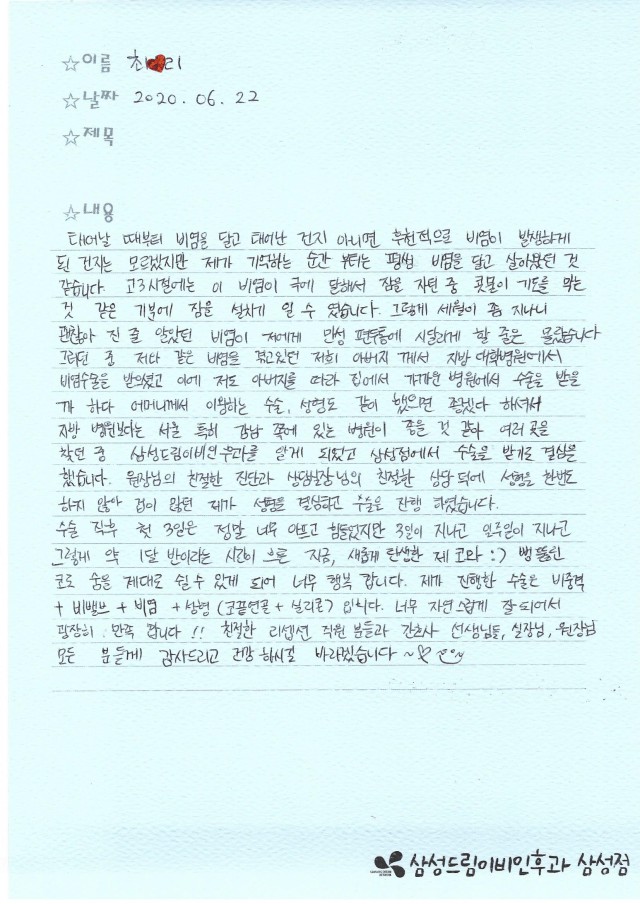 ☆이름 최❤리
☆날짜 2020. 06. 22
☆제목
☆내용
태어날 때부터 비염을 달고 태어난 건지 아니면 후천적으로 비염이 발생하게
된 건지는 모르겠지만 제가 기억하는 순간 부터는 평생 비염을 달고 살아왔던 것
같습니다. 고3시절에는 이 비염이 극에 달해서 잠을 자던 중 콧물이 기도를 막는
것 같은 기분에 잠을 설치기 일 수 였습니다. 그렇게 세월이 좀 지나니
괜찮아 진 줄 알았던 비염이 저에게 만성 편두통에 시달리게 할 줄은 몰랐습니다
그러던 중 저와 같은 비염을 겪고있던 저희 아버지 께서 지방 대학병원에서
비염수술을 받으셨고 이에 저도 아버지를 따라 집에서 가까운 병원에서 수술을 받을
까 하다 어머니께서 이왕하는 수술, 성형도 같이 했으면 좋겠다 하셔서
지방 병원보다는 서울 특히 강남 쪽에 있는 병원이 좋을 것 같아 여러 곳을
찾던 중 삼성드림이비인후과를 알게 되었고 삼성점에서 수술을 받기로 결심을
했습니다. 원장님의 친절한 진단과 상담실장님의 친절한 상담 덕에 성형을 한번도
하지 않아 겁이 많던 제가 성형을 결심하고 수술을 진행 하였습니다.
수술 직후 첫 3일은 정말 너무 아프고 힘들었지만 3일이 지나고 일주일이 지나고
그렇게 약 1달 반이라는 시간이 흐른 지금, 새롭게 탄생한 제 코와 :) 뻥 뚫린
코로 숨을 제대로 쉴 수 있게 되어 너무 행복 합니다. 제가 진행한 수술은 비중격
+ 비밸브 + 비염 + 성형 (코끝연골 + 실리콘) 입니다. 너무 자연스럽게 잘 되어서
굉장히 만족 합니다 !! 친절한 리셉션 직원 분들과 간호사 선생님들, 실장님, 원장님
모든 분들께 감사드리고 건강 하시길 바라겠습니다 ~
삼성드림이비인후과 삼성점